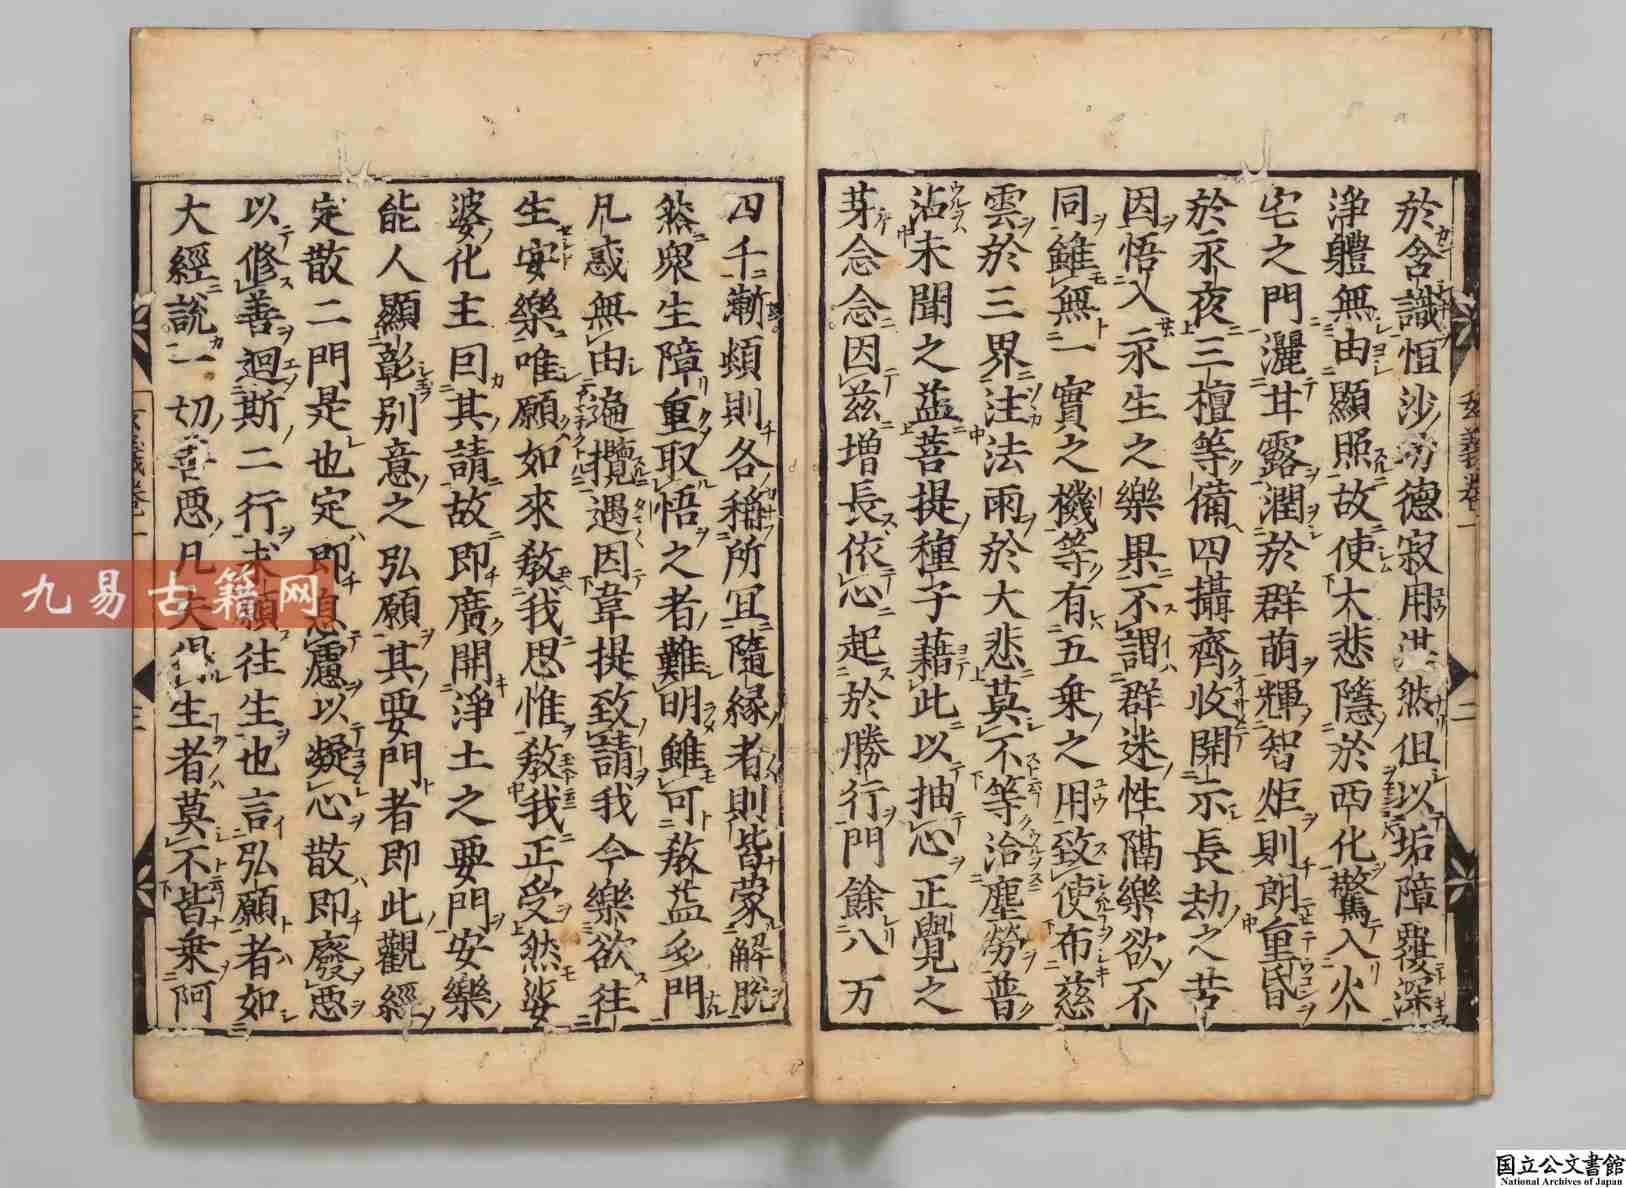 於含識恒沙功德寂用湛然但以垢障覆深
淨體無由顯照故使大悲隱於西化驚入火
宅之門灑甘露潤於群萌輝智炬則朗重昏
於永夜三檀等備四攝齊收開示長劫之苦
因悟入永生之樂果不謂群迷性隔樂欲不
同雖無一實之機等有五乗之用致使布慈
雲於三界注法雨於大悲莫不等洽塵勞普
沾未聞之益菩提種子藉此以抽心正覺之
芽念念因茲增長依心起於勝行門餘八万
四千漸頓則各稱所冝隨縁者則皆蒙解脫
然衆生障重取悟之者難明雖可教益多門
凡惑無由遍攬遇因韋提致請我今樂欲往
生安樂唯願如來教我思惟教我正受然娑
婆化主囙其請故即廣開淨土之要門安樂
能人顯彰別意之弘願其要門者即此觀經
定散二門是也定即息慮以凝心散即廢惡
以修善迴斯二行求願往生也言弘願者如
大經說一切善惡凡夫得生者莫不皆乗阿
玄義卷一
二
玄義卷一
三
九易古籍网
国立公文書館
National Archives of Japan